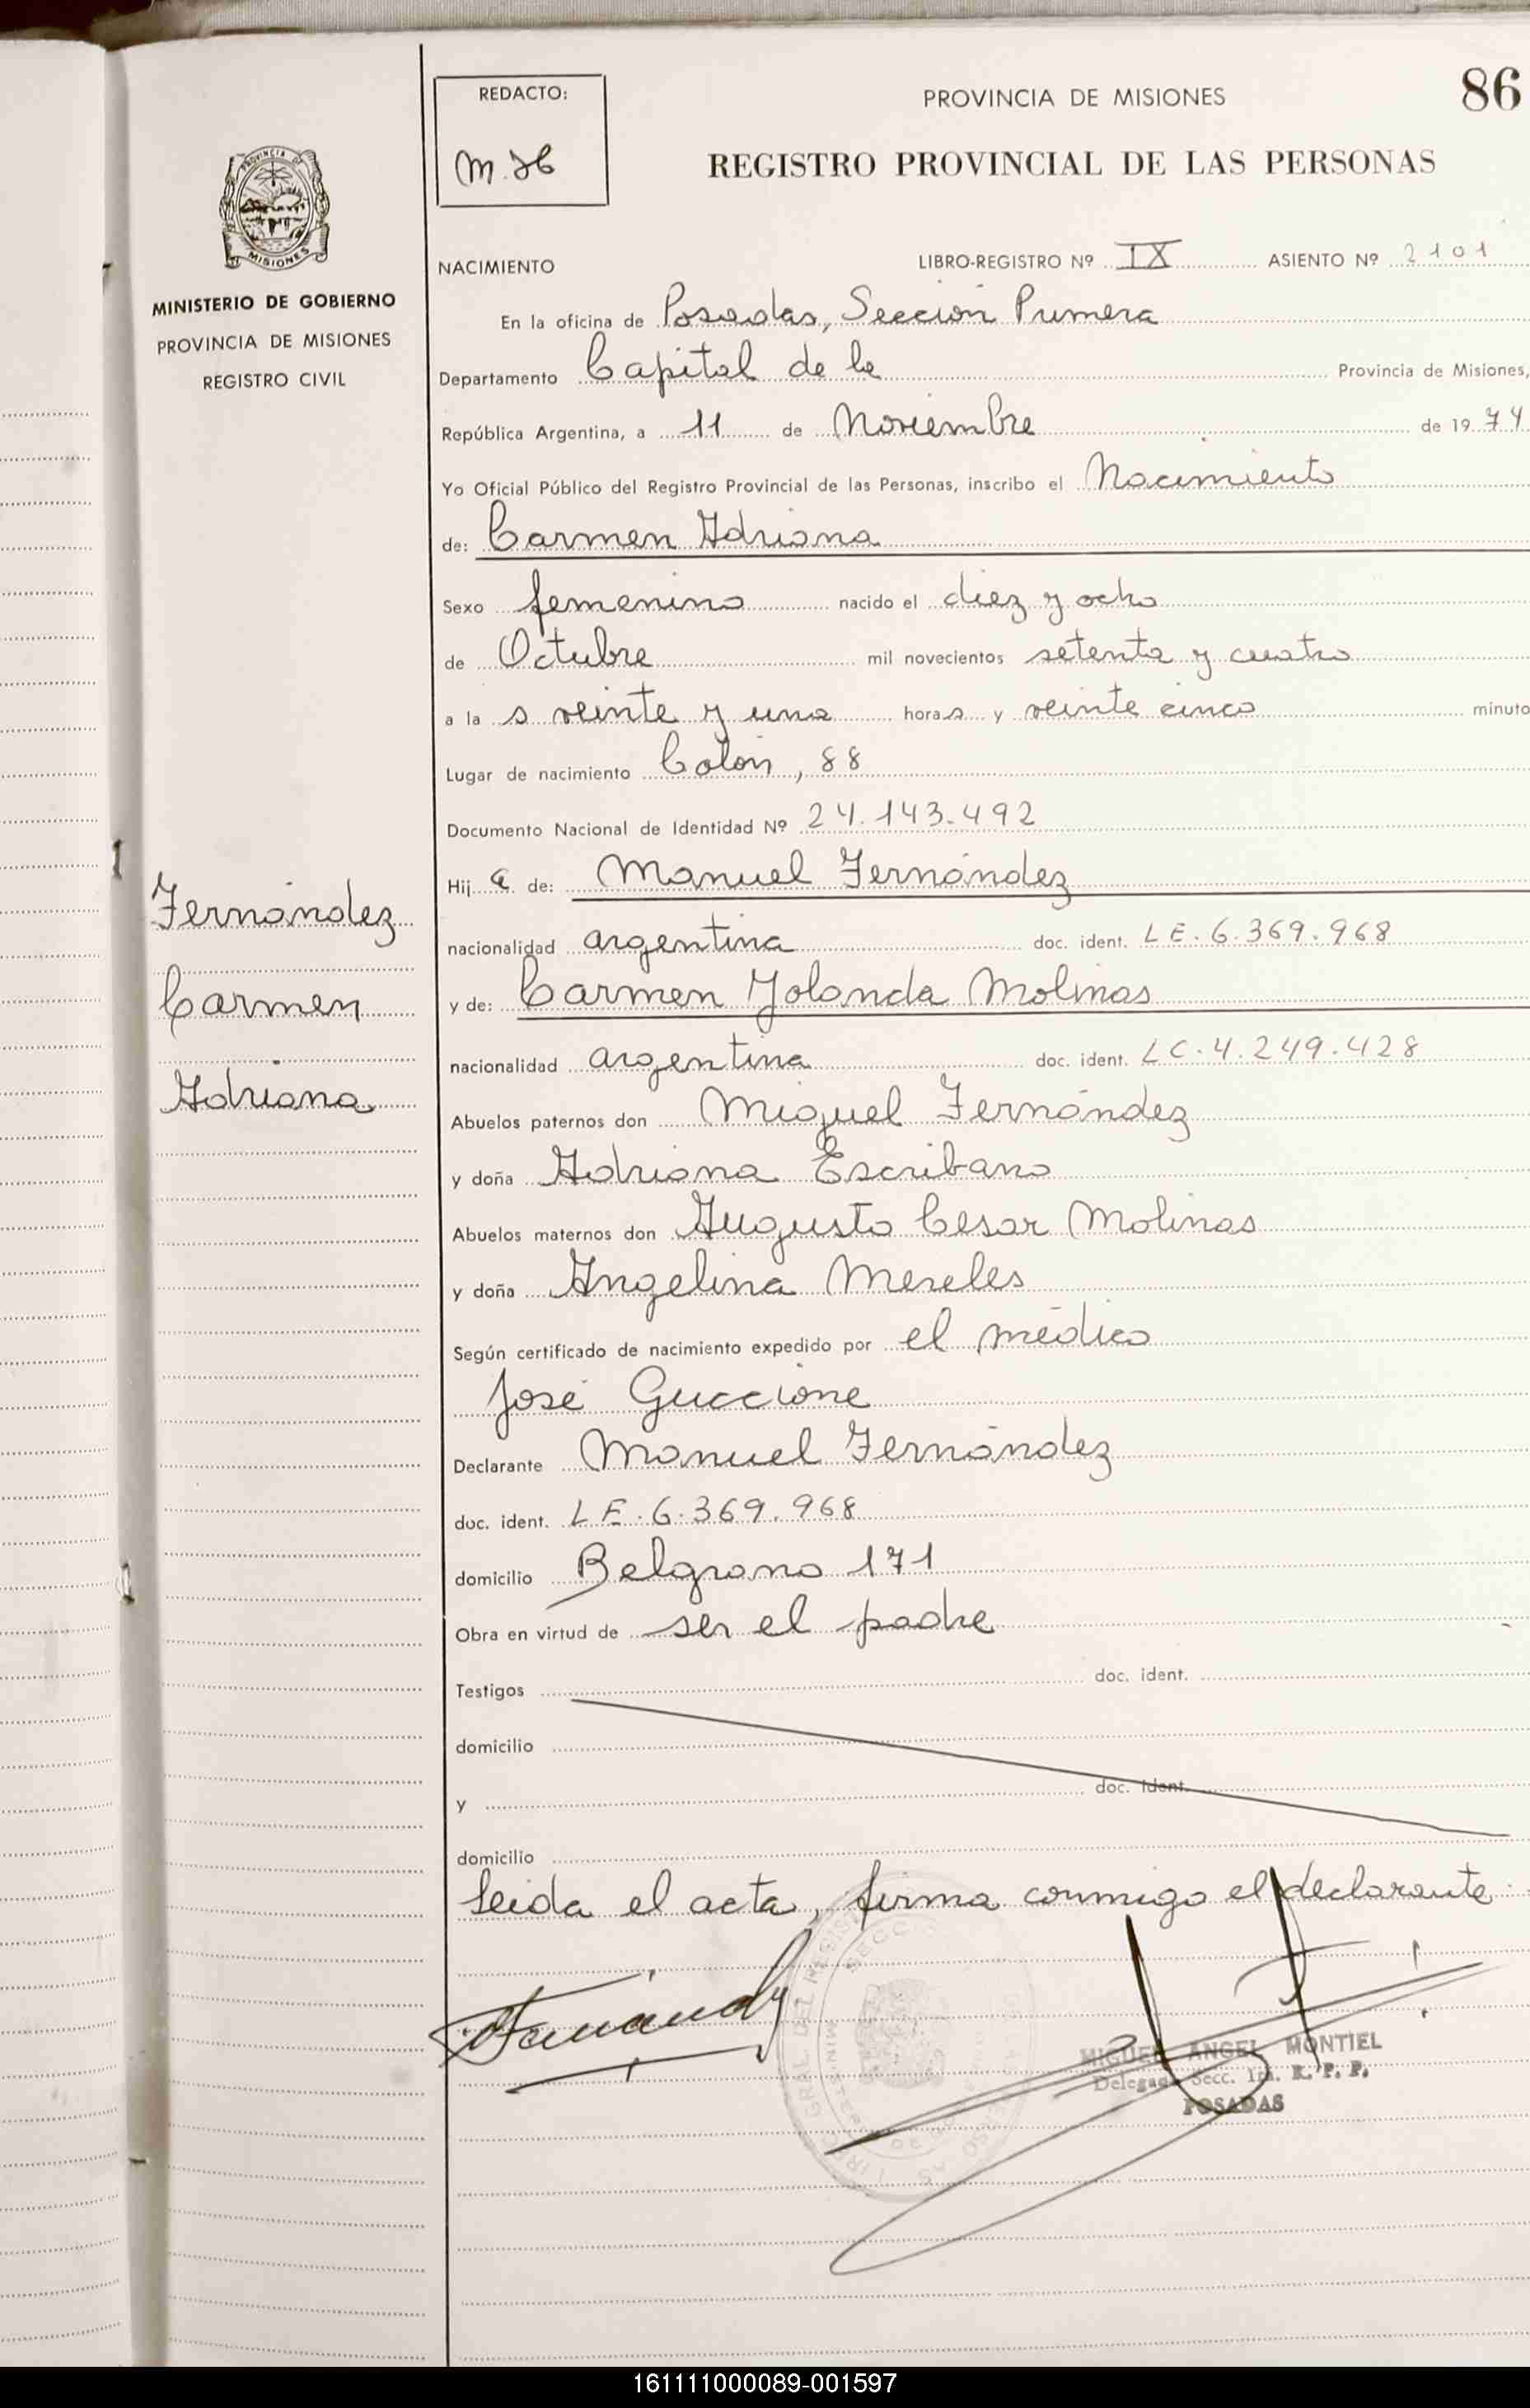 86
REDACTO:
M.
PROVINCIA DE MISIONES
REGISTRO PROVINCIAL DE LAS PERSONAS
PROVINCIA DE
MISIONES
MINISTERIO DE GOBIERNO
PROVINCIA DE MISIONES
REGISTRO CIVIL
NACIMIENTO LIBRO-REGISTRO Nº IX ASIENTO Nº 2101
En la oficina de Posadas, Sección Primera
Departamento Capital de la Provincia de Misiones,
República Argentina, a 11 de Noviembre de 1974
Yo Oficial Público del Registro Provincial de las Personas, inscribo el Nacimiento
de: Carmen Adriana
Sexo femenino nacido el diez y ocho
de Octubre mil novecientos setenta y cuatro
a la s veinte y una horas y veinte cinco minuto
Lugar de nacimiento Colón, 88
Documento Nacional de Identidad Nº 24.143.492
Hij a de: Manuel Fernández
nacionalidad argentina doc. ident. LE.6.369.968
y de: Carmen Yolanda Molinas
nacionalidad argentina doc. ident. LC.4.249.428
Abuelos paternos don Miguel Fernández
y doña Adriana Escribano
Abuelos maternos don Augusto Cesar Molinas
y doña Angelina Mereles
Según certificado de nacimiento expedido por el médico
José Guccione
Declarante Manuel Fernández
doc. ident. LE.6.369.968
domicilio Belgrano 171
Obra en virtud de ser el padre
Testigos doc. ident.
domicilio
y doc. ident.
domicilio
Leida el acta, firma conmigo el declarante
Fernández
Carmen
Adriana
MIGUEL ANGEL MONTIEL
Delegado Secc. 1ra. R. P. P.
POSADAS
161111000089-001597